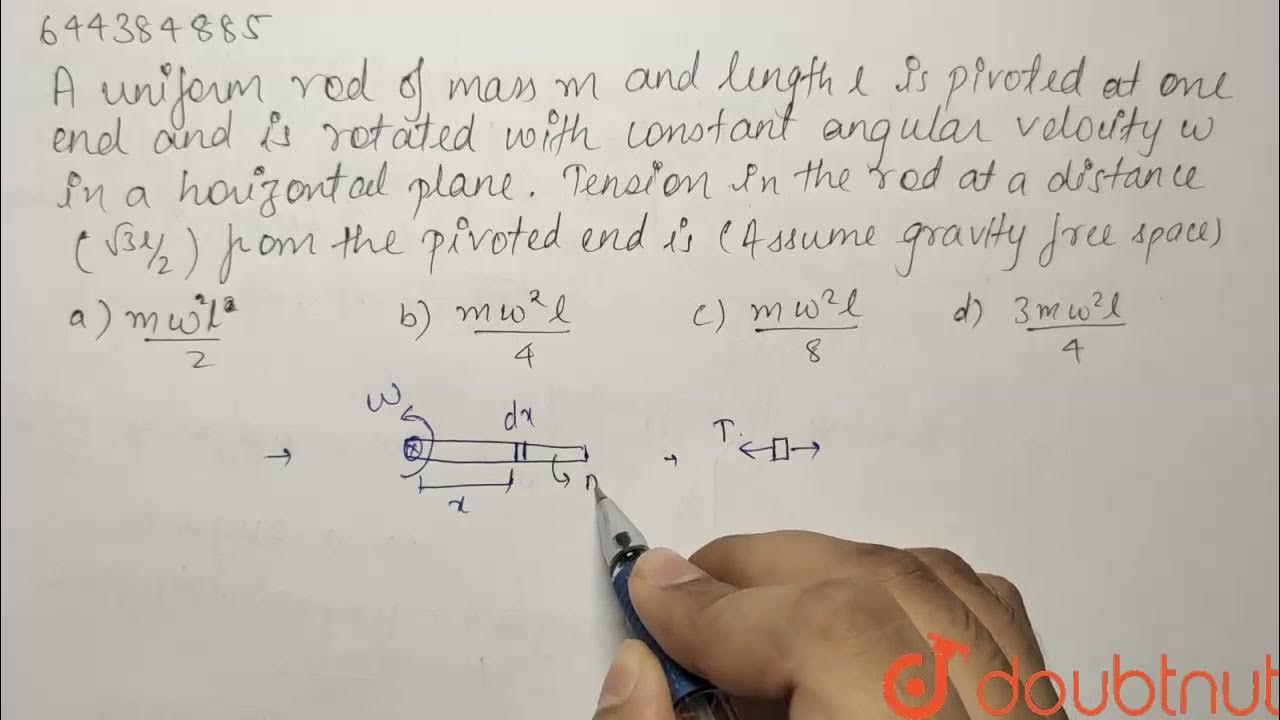 644384885
A uniform rod of mass m and length l is pivoted at one
end and is rotated with constant angular velocity ω
in a horizontal plane. Tension in the rod at a distance
(√3l/2) from the pivoted end is (Assume gravity free space)
a) mω²l²/2 b) mω²l/4 c) mω²l/8 d) 3mω²l/4
ω
dx
T
→ → 
x
doubtnut